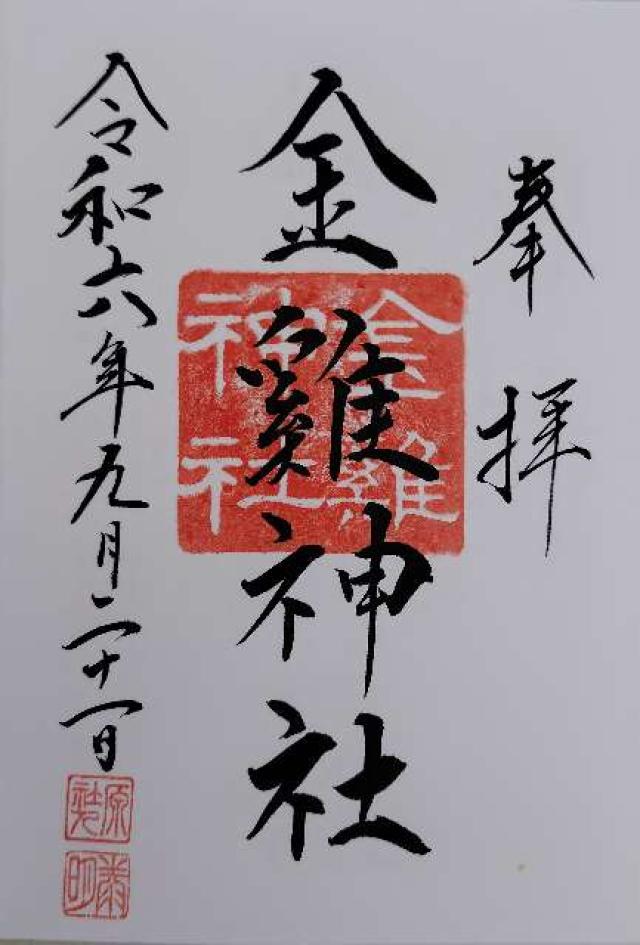 奉拝
金雞神社
金雞神社
令和六年九月二十一日